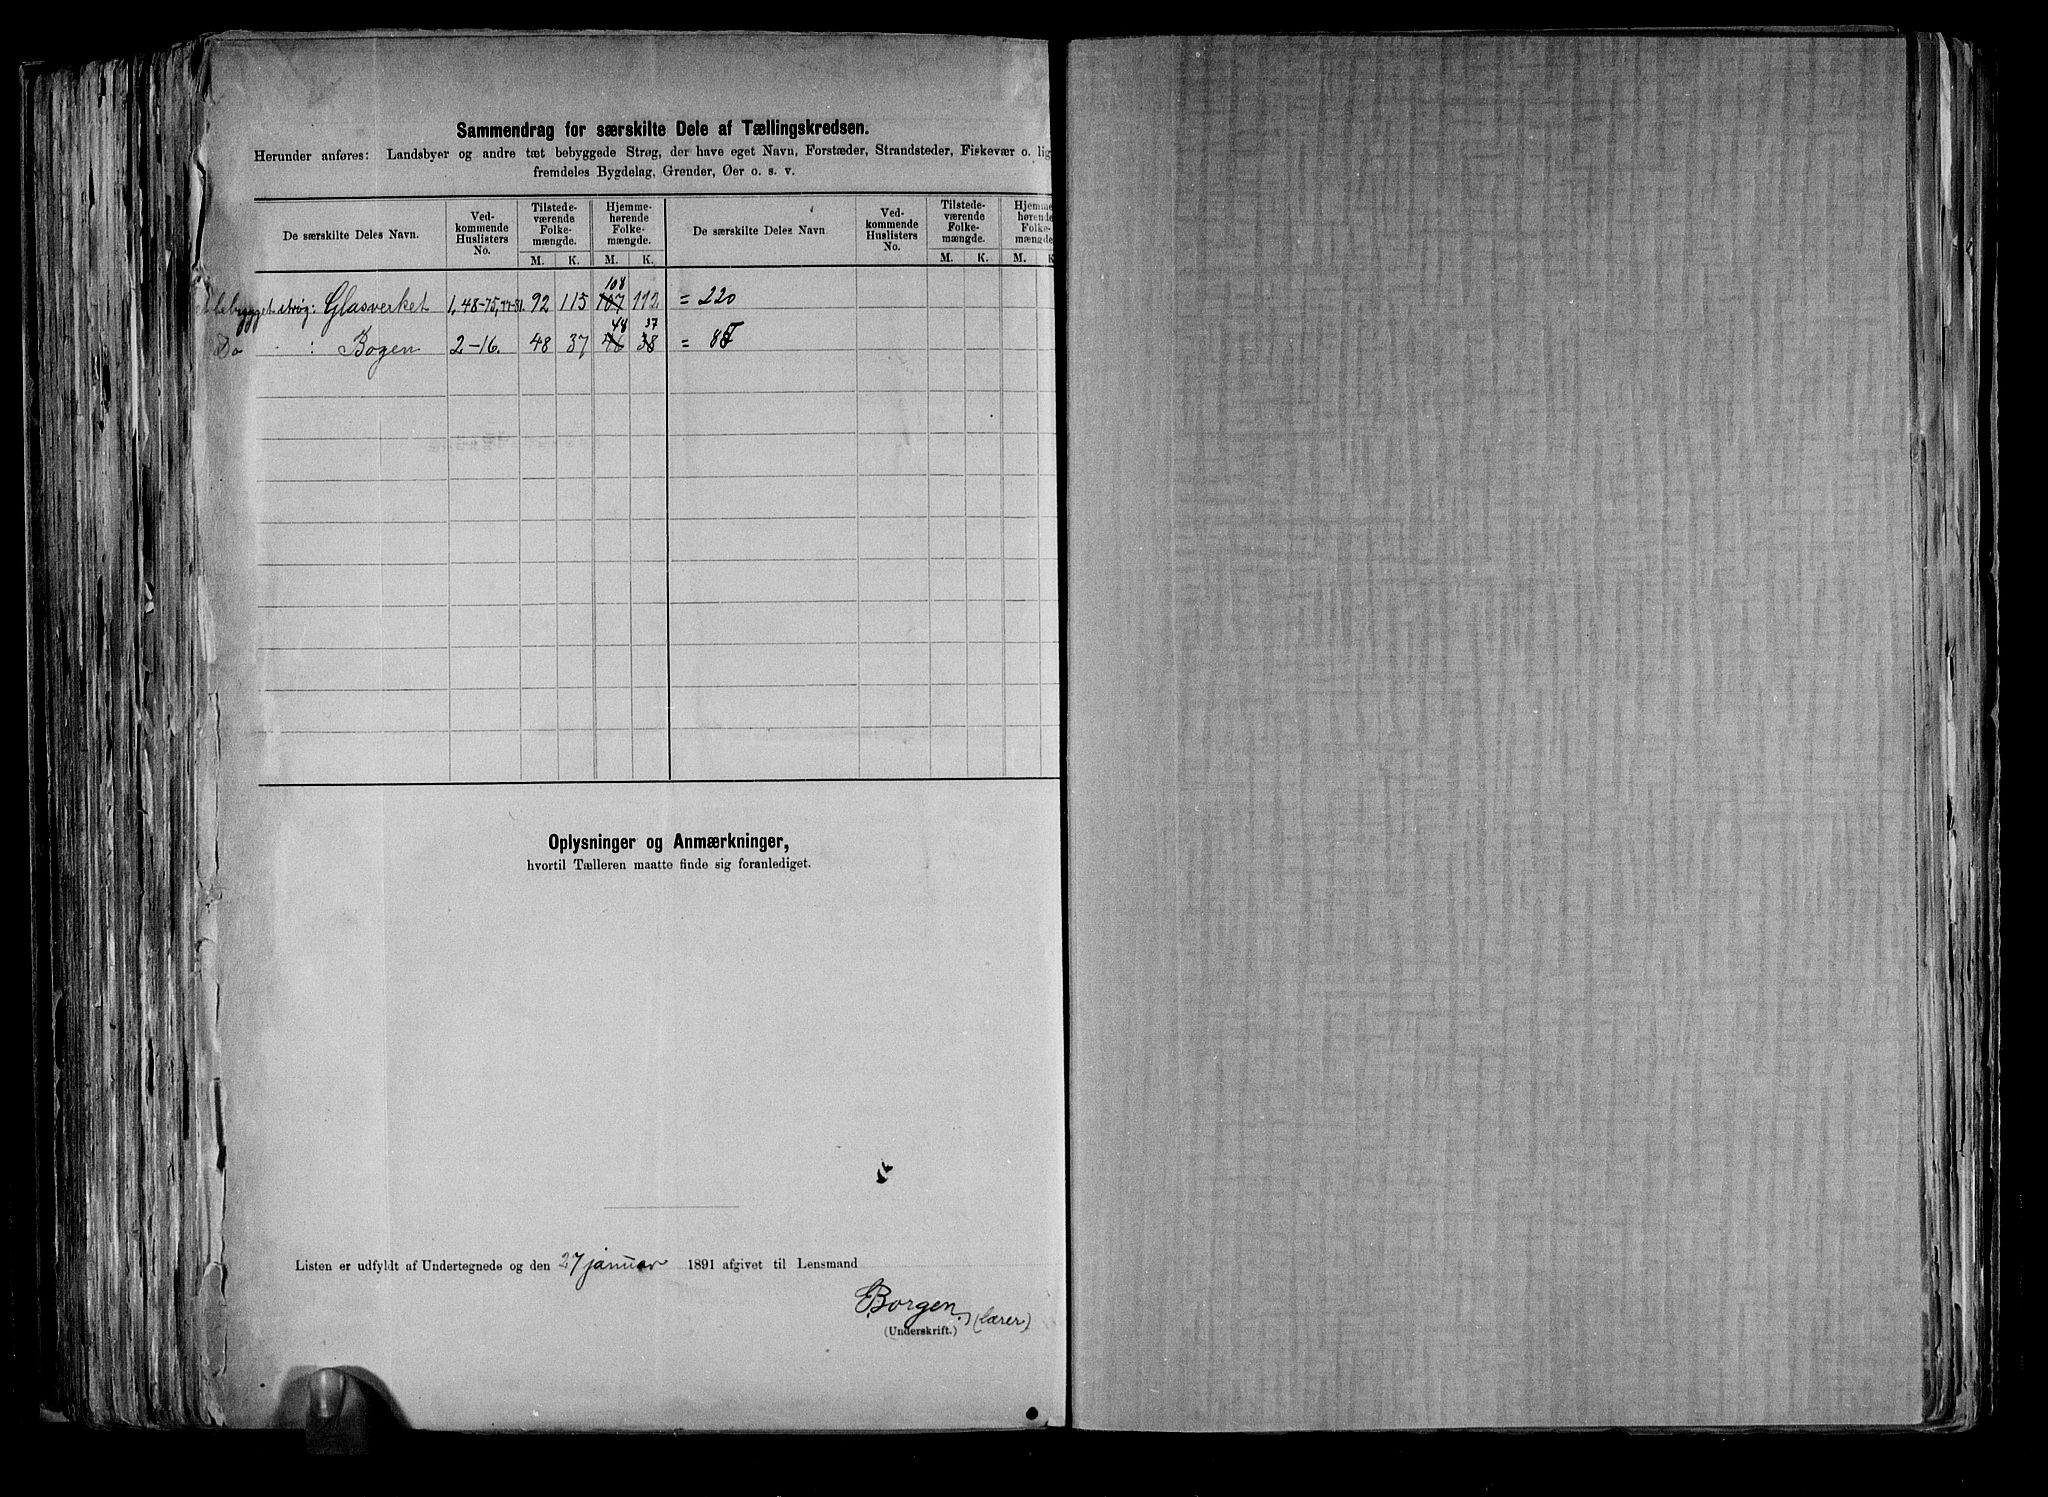 Sammendrag for særskilte Dele af Tællingskredsen.
Herunder anføres: Landsbyer og andre tæt bebyggede Strøg, der have eget Navn, Forstæder, Strandsteder, Fiskevær o. lig
fremdeles Bygdelag, Grender, Øer o. s. v.
De særskilte Deles Navn. Ved-kommende Huslisters No. Tilstede-værende Folke-mængde. Hjemme-hørende Folke-mængde. De særskilte Deles Navn. Ved-kommende Huslisters No. Tilstede-værende Folke-mængde. Hjemme-hørende Folke-mængde.
M. K. M. K. M. K. M. K.
108
bebygget strøg: Glasverket 1, 48-75, 77-81. 92 115 107 112 = 220
48 37
Do " : Bogen 2-16. 48 37 46 38 = 85
Oplysninger og Anmærkninger,
hvortil Tælleren maatte finde sig foranlediget.
Listen er udfyldt af Undertegnede og den 27 januar 1891 afgivet til Lensmand
Borgen. (lærer)
(Underskrift.)